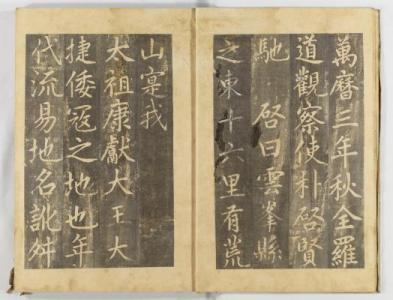 萬曆三年秋全羅
道觀察使朴啓賢
馳 啓曰雲峯縣
之東十六里有荒
山寔我
太祖康獻大王大
捷倭寇之地也年
代流易地名訛舛